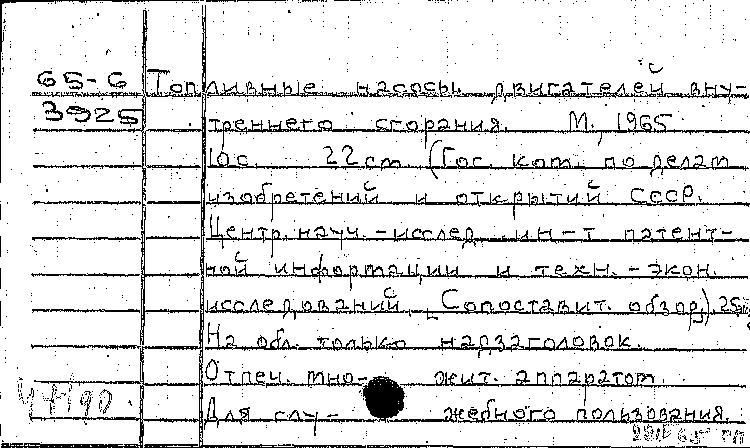 65-6 Топливные насосы двигателей вну-
3925 треннего сгорания. М., 1965
10с. 22см (Гос. ком. по делам
изобретений и открытий СССР.
Центр. науч.-исслед. ин-т патент-
ной информации и техн.-экон.
исследований. Сопоставит. обзор).
На обл. только надзаголовок.
Отпеч. мно- жит. аппаратом.
Для слу- жебного пользования.